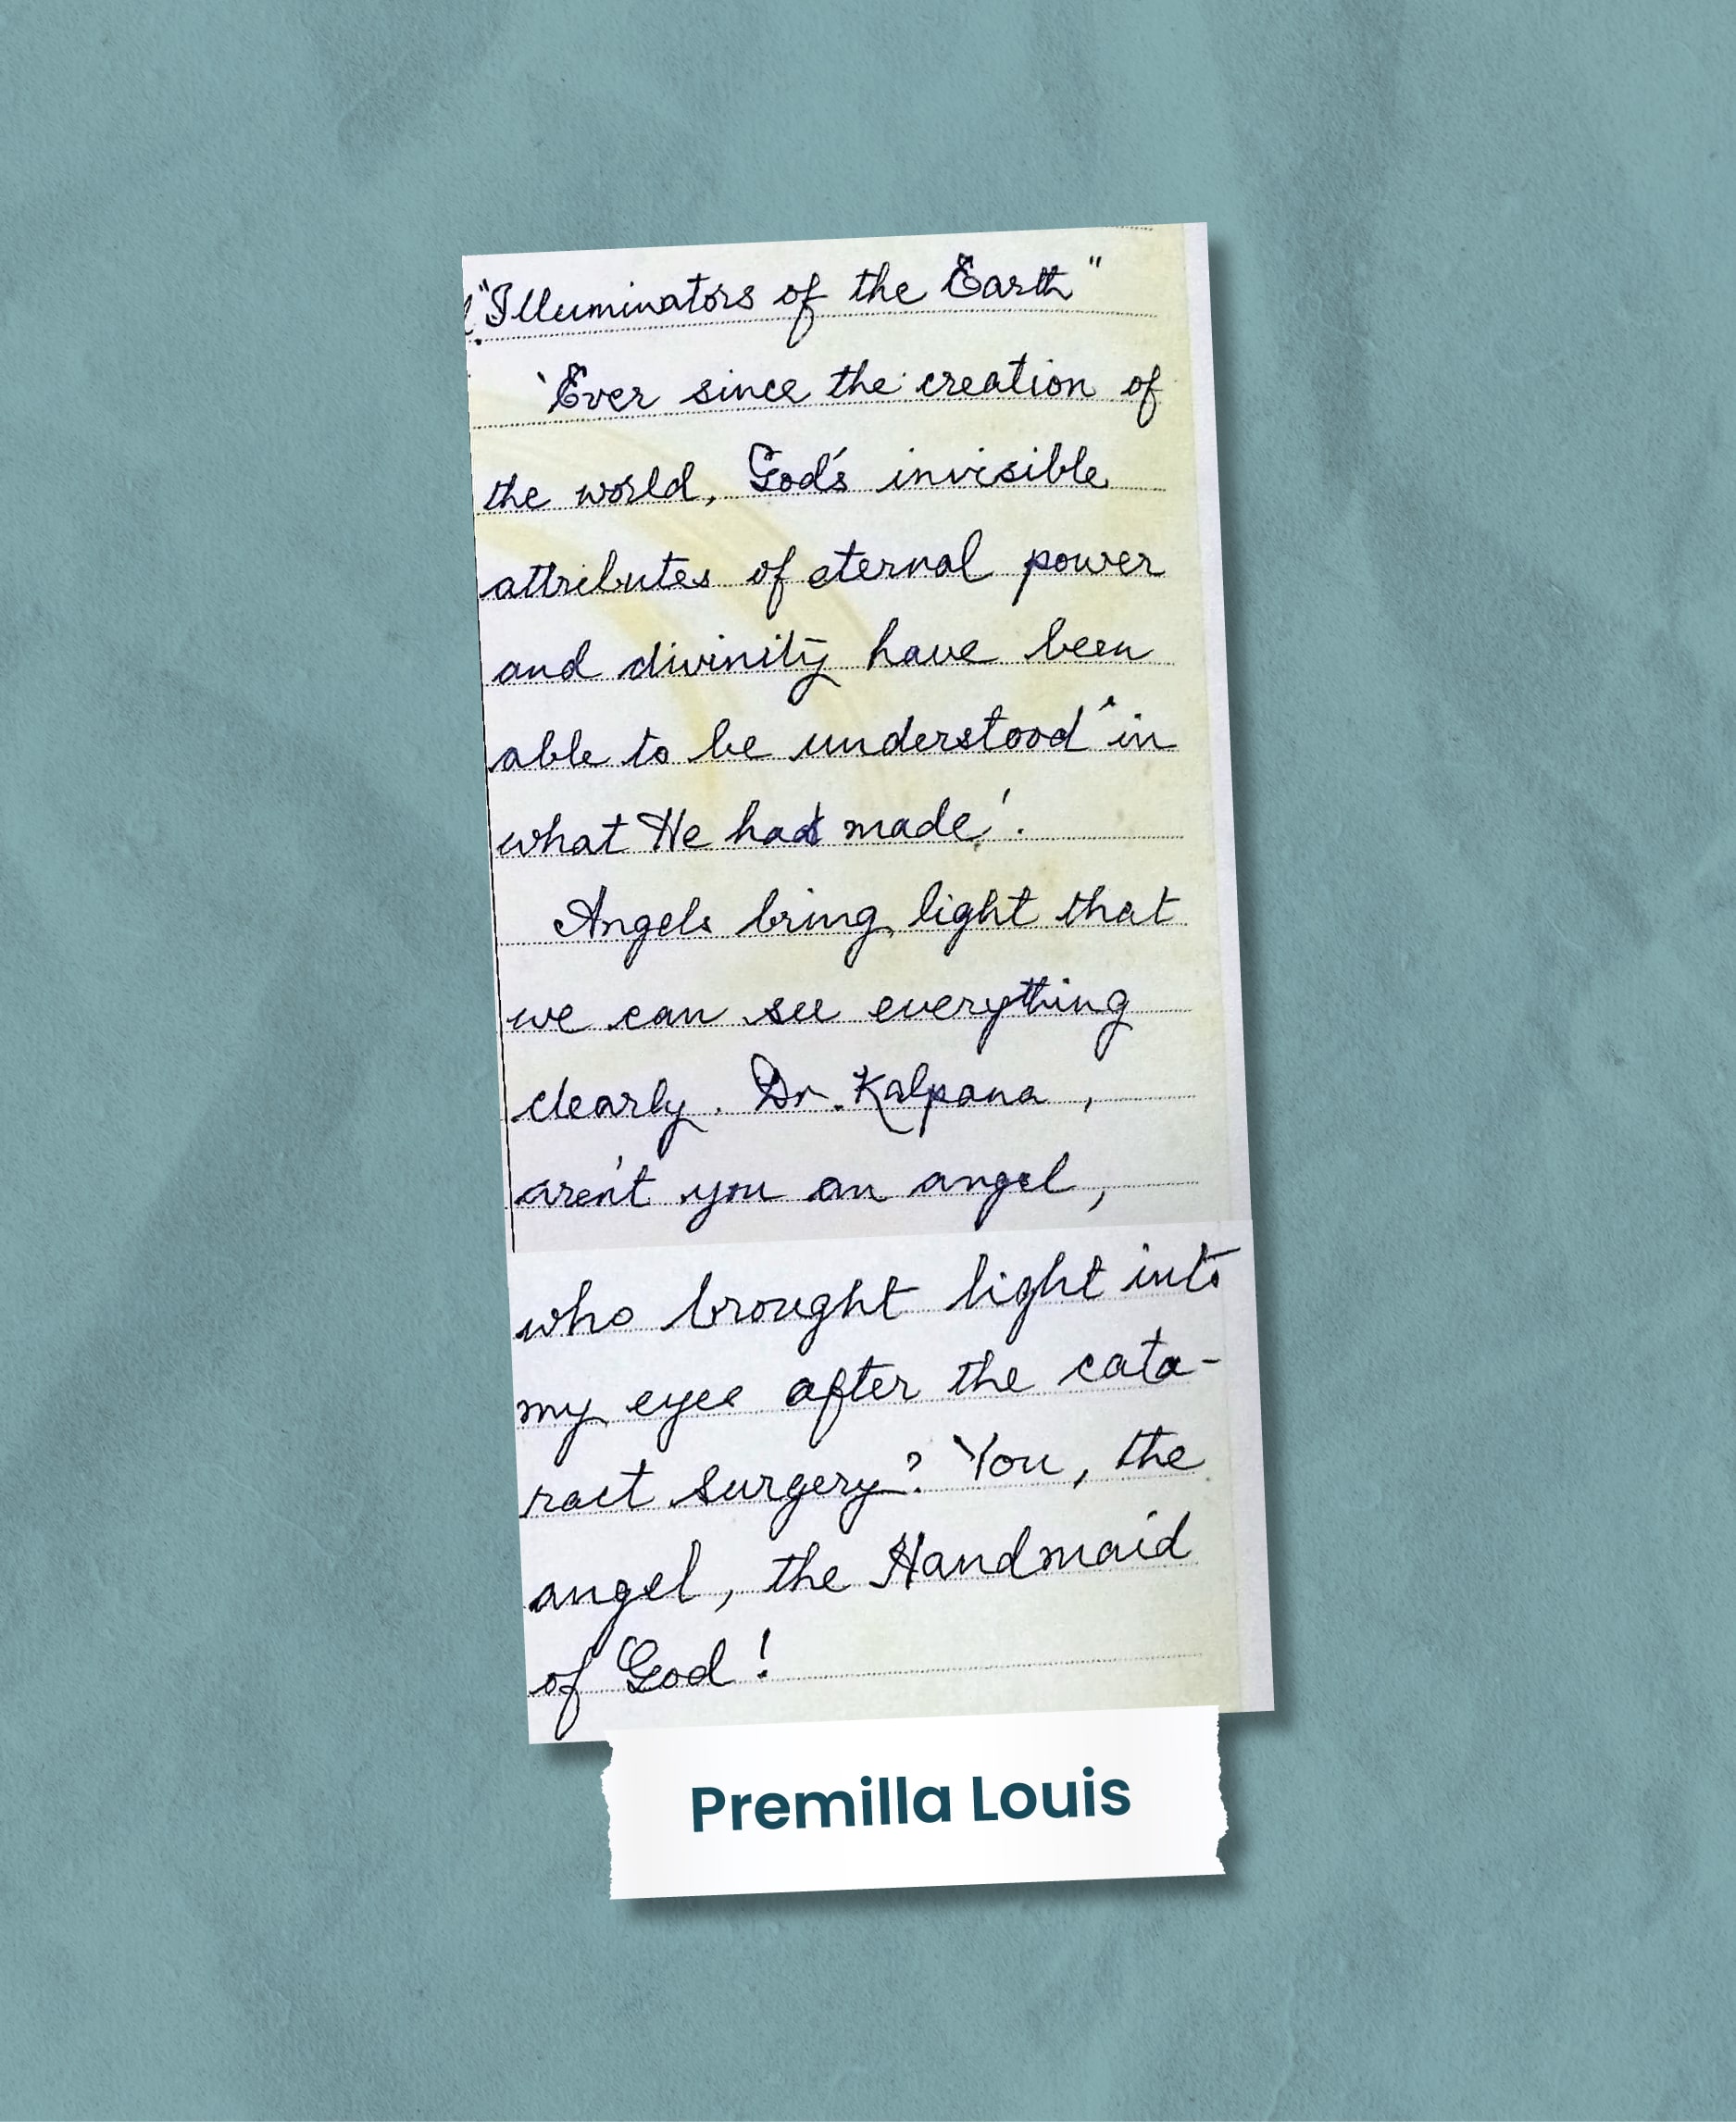 "Illuminators of the Earth"
'Ever since the creation of
the world, God's invisible
attributes of eternal power
and divinity have been
able to be understood in
what He had made'.
Angels bring light that
we can see everything
clearly. Dr. Kalpana,
aren't you an angel,
who brought light into
my eyes after the cata-
ract surgery? You, the
angel, the Handmaid
of God!
Premilla Louis